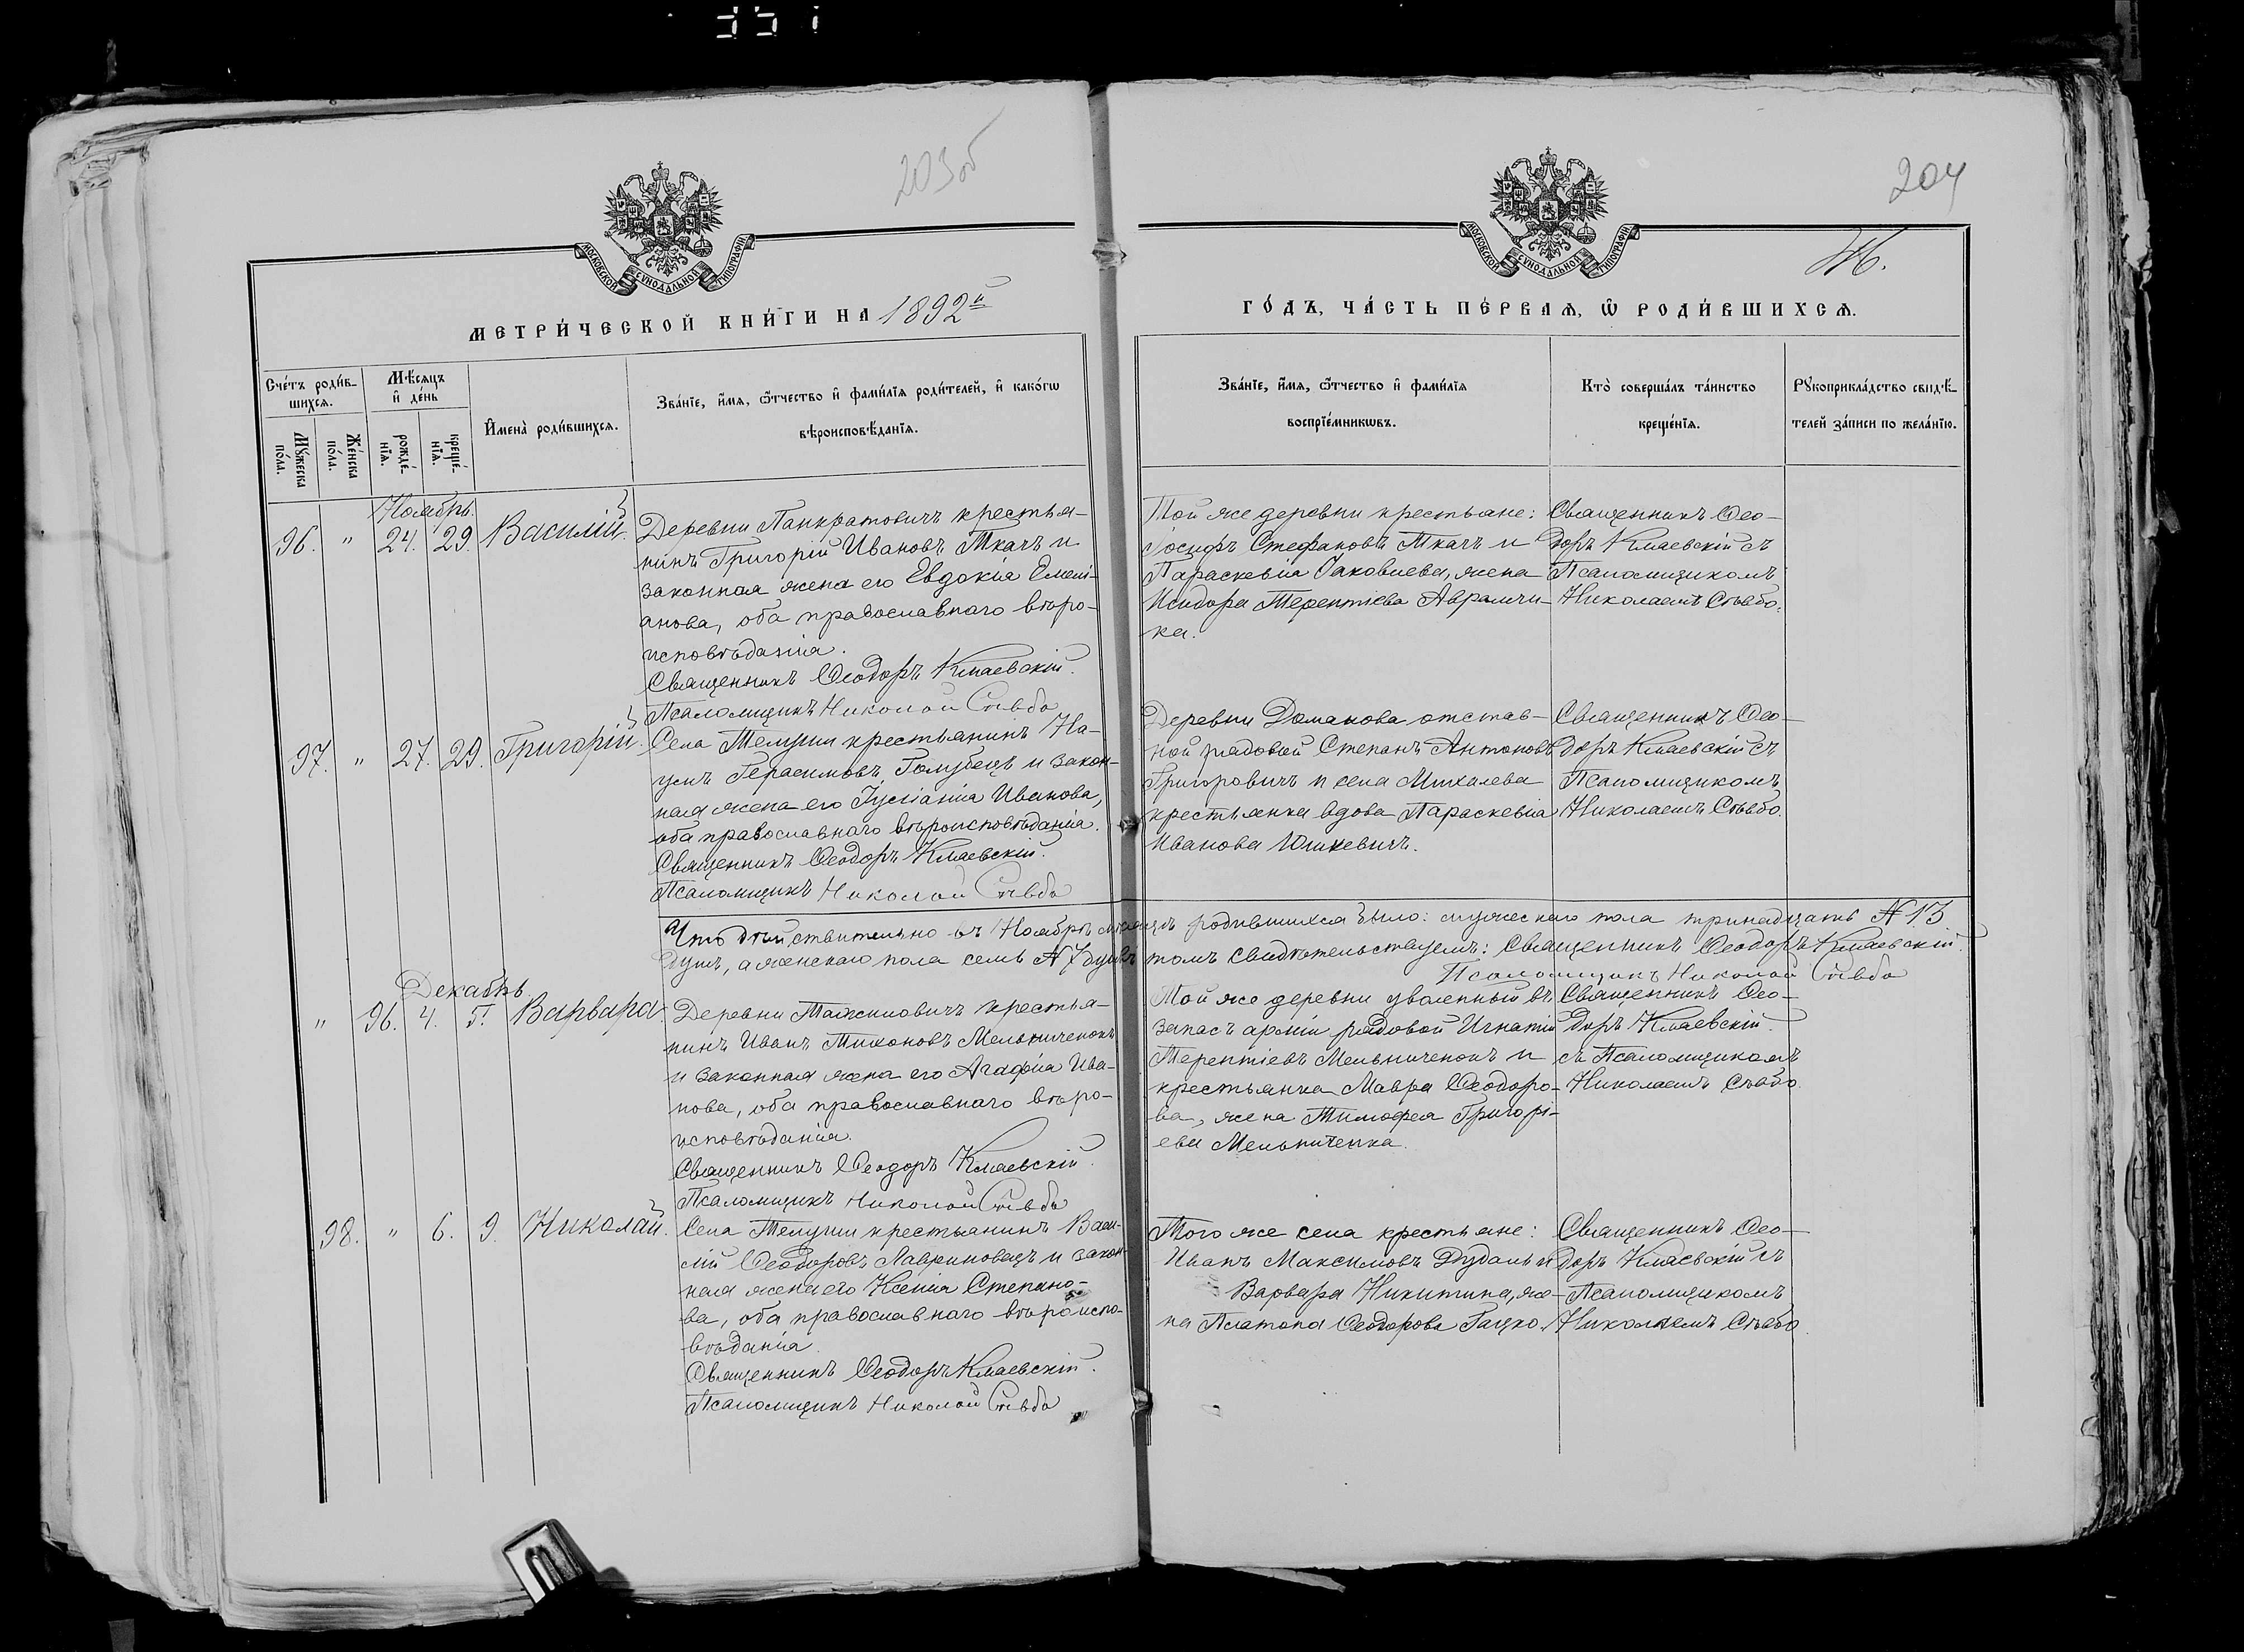 203об
204
МОСКОВСКОЙ СѴНОДАЛЬНОЙ ТИПОГРАФІИ
МОСКОВСКОЙ СѴНОДАЛЬНОЙ ТИПОГРАФІИ
МЕТРИ́ЧЕСКОЙ КНИ́ГИ НА 1892й
ГО́ДЪ, ЧА́СТЬ ПЕ́РВАѦ, Ѽ РОДИ́ВШИХСѦ.
Сче́тъ роди́в-
шихсѧ.
Мꙋ́жеска
по́ла.
Же́нска
по́ла.
Мѣ́сѧцъ
и҆ де́нь
рожде́-
нїѧ.
креще́-
нїѧ.
И҆мена̀ роди́вшихсѧ.
Зва́нїе, и҆́мѧ, ѻ҆́тчество и҆ фами́лїѧ роди́телей, и҆ како́гѡ
вѣроисповѣ́данїѧ.
Зва́нїе, и҆́мѧ, ѻ҆́тчество и҆ фами́лїѧ
воспрїе́мникѡвъ.
Кто̀ соверша́лъ та́инство
креще́нїѧ.
Рꙋкоприкла́дство свидѣ́-
телей за́писи по жела́нїю.
Ноябрь.
96. " 24. 29. Василій.
Деревни Панкратовичъ крестья-
нинъ Григорій Ивановъ Ткачъ и
законная жена его Евдокія Емелі-
анова, оба православнаго вѣро-
исповѣданія.
Священникъ Ѳеодоръ Кмаевскій.
Псаломщикъ Николай Сѣвбо
Той же деревни крестьяне:
Іосифъ Стефановъ Ткачъ и
Параскевія Іаковлева, жена
Исидора Терентіева Аврамчи-
ка.
Священникъ Ѳео-
доръ Кмаевскій съ
Псаломщикомъ
Николаемъ Сѣвбо.
97. " 27. 29. Григорій.
Села Телуши крестьянинъ На-
умъ Герасимовъ Голубецъ и закон-
ная жена его Іуліанія Иванова,
оба православнаго вѣроисповѣданія.
Священникъ Ѳеодоръ Кмаевскій.
Псаломщикъ Николай Сѣвбо
Деревни Доманова отстав-
ной рядовой Степанъ Антоновъ
Григоровичъ и села Михалева
крестьянка вдова Параскевія
Иванова Юшкевичъ.
Священникъ Ѳео-
доръ Кмаевскій съ
Псаломщикомъ
Николаемъ Сѣвбо.
Что дѣйствительно въ Ноябрѣ мѣсяцѣ родившихся было: мужескаго пола тринадцать № 13
душъ, а женскаго пола семь № 7 душъ томъ свидѣтельствуемъ: Священникъ Ѳеодоръ Кмаевскій.
Псаломщикъ Николай Сѣвбо
Декабрь.
" 96. 4. 5. Варвара.
Деревни Тажиловичъ крестья-
нинъ Иванъ Тихоновъ Мельниченокъ
и законная жена его Агафія Ива-
нова, оба православнаго вѣро-
исповѣданія.
Священникъ Ѳеодоръ Кмаевскій.
Псаломщикъ Николай Сѣвбо
Той же деревни уволенный въ
запасъ арміи рядовой Игнатій
Терентіевъ Мельниченокъ и
крестьянка Мавра Ѳеодоро-
ва, жена Тимоѳея Григорі-
ева Мельниченка.
Священникъ Ѳео-
доръ Кмаевскій.
съ Псаломщикомъ
Николаемъ Сѣвбо.
98. " 6. 9. Николай.
Села Телуши крестьянинъ Васи-
лій Ѳеодоровъ Лавриновецъ и закон-
ная жена его Ксенія Степано-
ва, оба православнаго вѣроиспо-
вѣданія.
Священникъ Ѳеодоръ Кмаевскій.
Псаломщикъ Николай Сѣвбо
Того же села крестьяне:
Иванъ Максимовъ Дудаль и
Варвара Никитина, же-
на Платона Ѳеодорова Гацко.
Священникъ Ѳео-
доръ Кмаевскій съ
Псаломщикомъ
Николаемъ Сѣвбо.